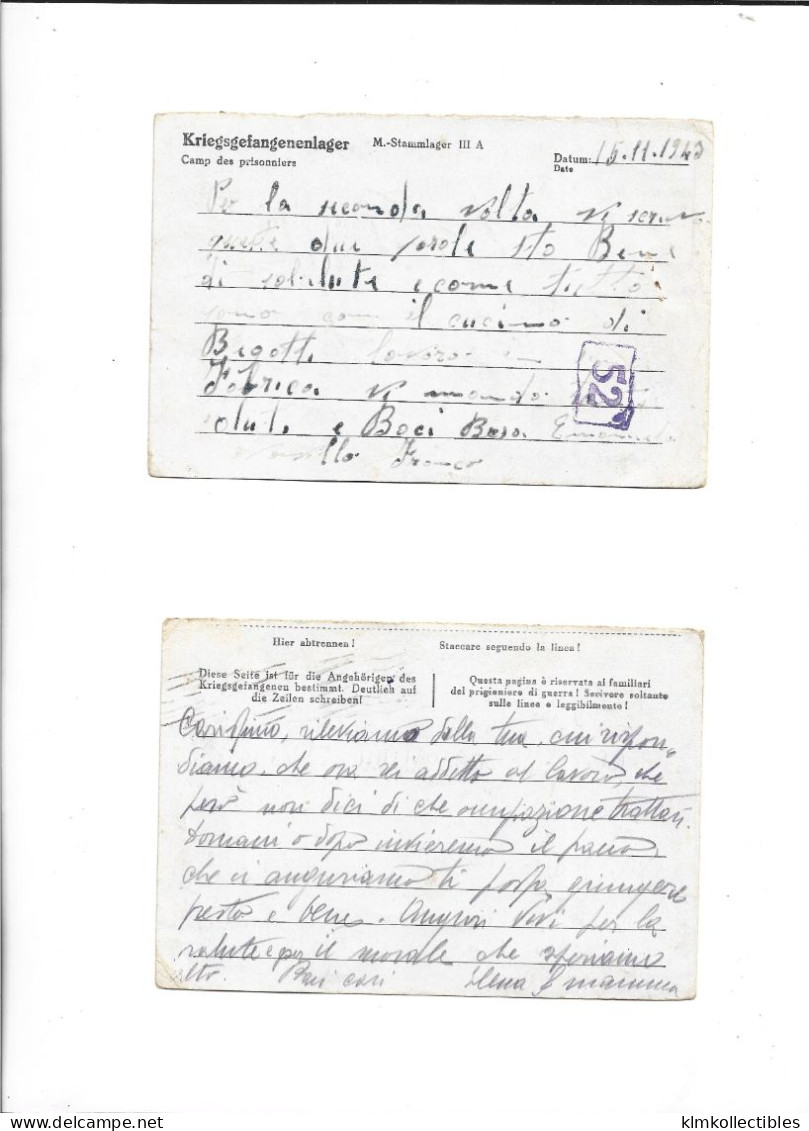 Kriegsgefangenenlager M.-Stammlager III A
Camp des prisonniers
Datum: 15.11.1943
Date
Per la seconda volta vi scrivo
queste due parole sto Bene
di salute e come tutto
sono con il cucino di
Begotti lavoro in
Fabrica vi mando
saluti e Baci Basa Emanuela
Franco
52
Hier abtrennen! Staccare seguendo la linea!
Diese Seite ist für die Angehörigen des
Kriegsgefangenen bestimmt. Deutlich auf
die Zeilen schreiben!
Questa pagina è riservata ai familiari
del prigioniero di guerra! Scrivere soltanto
sulle linee e leggibilmente!
Carissimo, rileviamo dalla tua, cui rispon=
diamo, che ora sei addetto al lavoro, che
però non dici di che occupazione trattasi.
Domani o dopo invieremo il pacco,
che ci auguriamo ti possa giungere
presto e bene. Auguri vivi per la
salute e per il morale che speriamo
alto. Baci cari mamma
klmkollectibles
delcampe.net